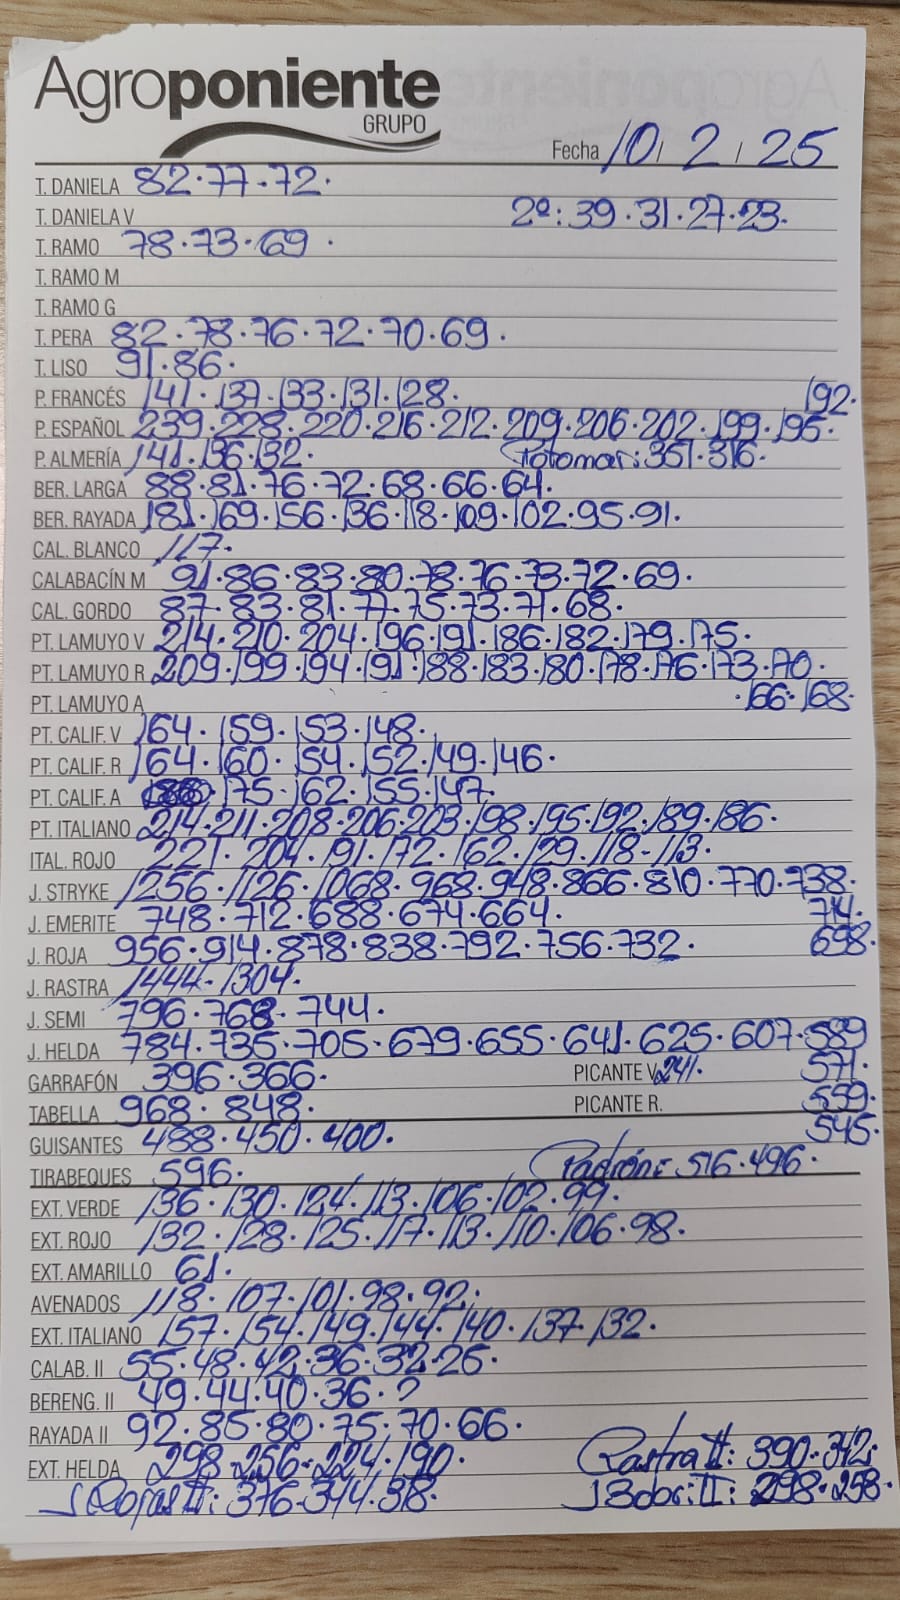 Agroponiente
GRUPO
Fecha 10 / 2 / 25
T. DANIELA 82.77.72.
T. DANIELA V 2ª: 39.31.27.23.
T. RAMO 78.73.69.
T. RAMO M
T. RAMO G
T. PERA 82.78.76.72.70.69.
T. LISO 91.86.
P. FRANCÉS 141.137.133.131.128. 192.
P. ESPAÑOL 239.228.220.216.212.209.206.202.199.195.
P. ALMERÍA 141.136.132. Totomar: 351.316.
BER. LARGA 88.81.76.72.68.66.64.
BER. RAYADA 181.169.156.136.118.109.102.95.91.
CAL. BLANCO 117.
CALABACÍN M 91.86.83.80.78.76.73.72.69.
CAL. GORDO 87.83.81.77.75.73.71.68.
PT. LAMUYO V 214.210.204.196.191.186.182.179.175.
PT. LAMUYO R 209.199.194.191.188.183.180.178.176.173.170.
PT. LAMUYO A .166.168.
PT. CALIF. V 164.159.153.148.
PT. CALIF. R 164.160.154.152.149.146.
PT. CALIF. A 175.162.155.147.
PT. ITALIANO 214.211.208.206.203.198.195.192.189.186.
ITAL. ROJO 221.204.191.172.162.129.118.113.
J. STRYKE 1256.1126.1068.968.948.866.810.770.738.
J. EMERITE 748.712.688.674.664. 714.
J. ROJA 956.914.878.838.792.756.732. 698.
J. RASTRA 1444.1304.
J. SEMI 796.768.744.
J. HELDA 784.735.705.679.655.641.625.607.589
GARRAFÓN 396.366. PICANTE V. 241. 571.
TABELLA 968.848. PICANTE R. 559.
GUISANTES 488.450.400. 545.
TIRABEQUES 596. Padrón: 516.496.
EXT. VERDE 136.130.124.113.106.102.99.
EXT. ROJO 132.128.125.117.113.110.106.98.
EXT. AMARILLO 61.
AVENADOS 118.107.101.98.92.
EXT. ITALIANO 157.154.149.144.140.137.132.
CALAB. II 55.48.42.36.32.25.
BERENG. II 49.44.40.36.?
RAYADA II 92.85.80.75.70.66.
EXT. HELDA 298.256.224.190. Rastra II: 390.342.
J Rojas II: 376.344.318. J Boby II: 298.258.